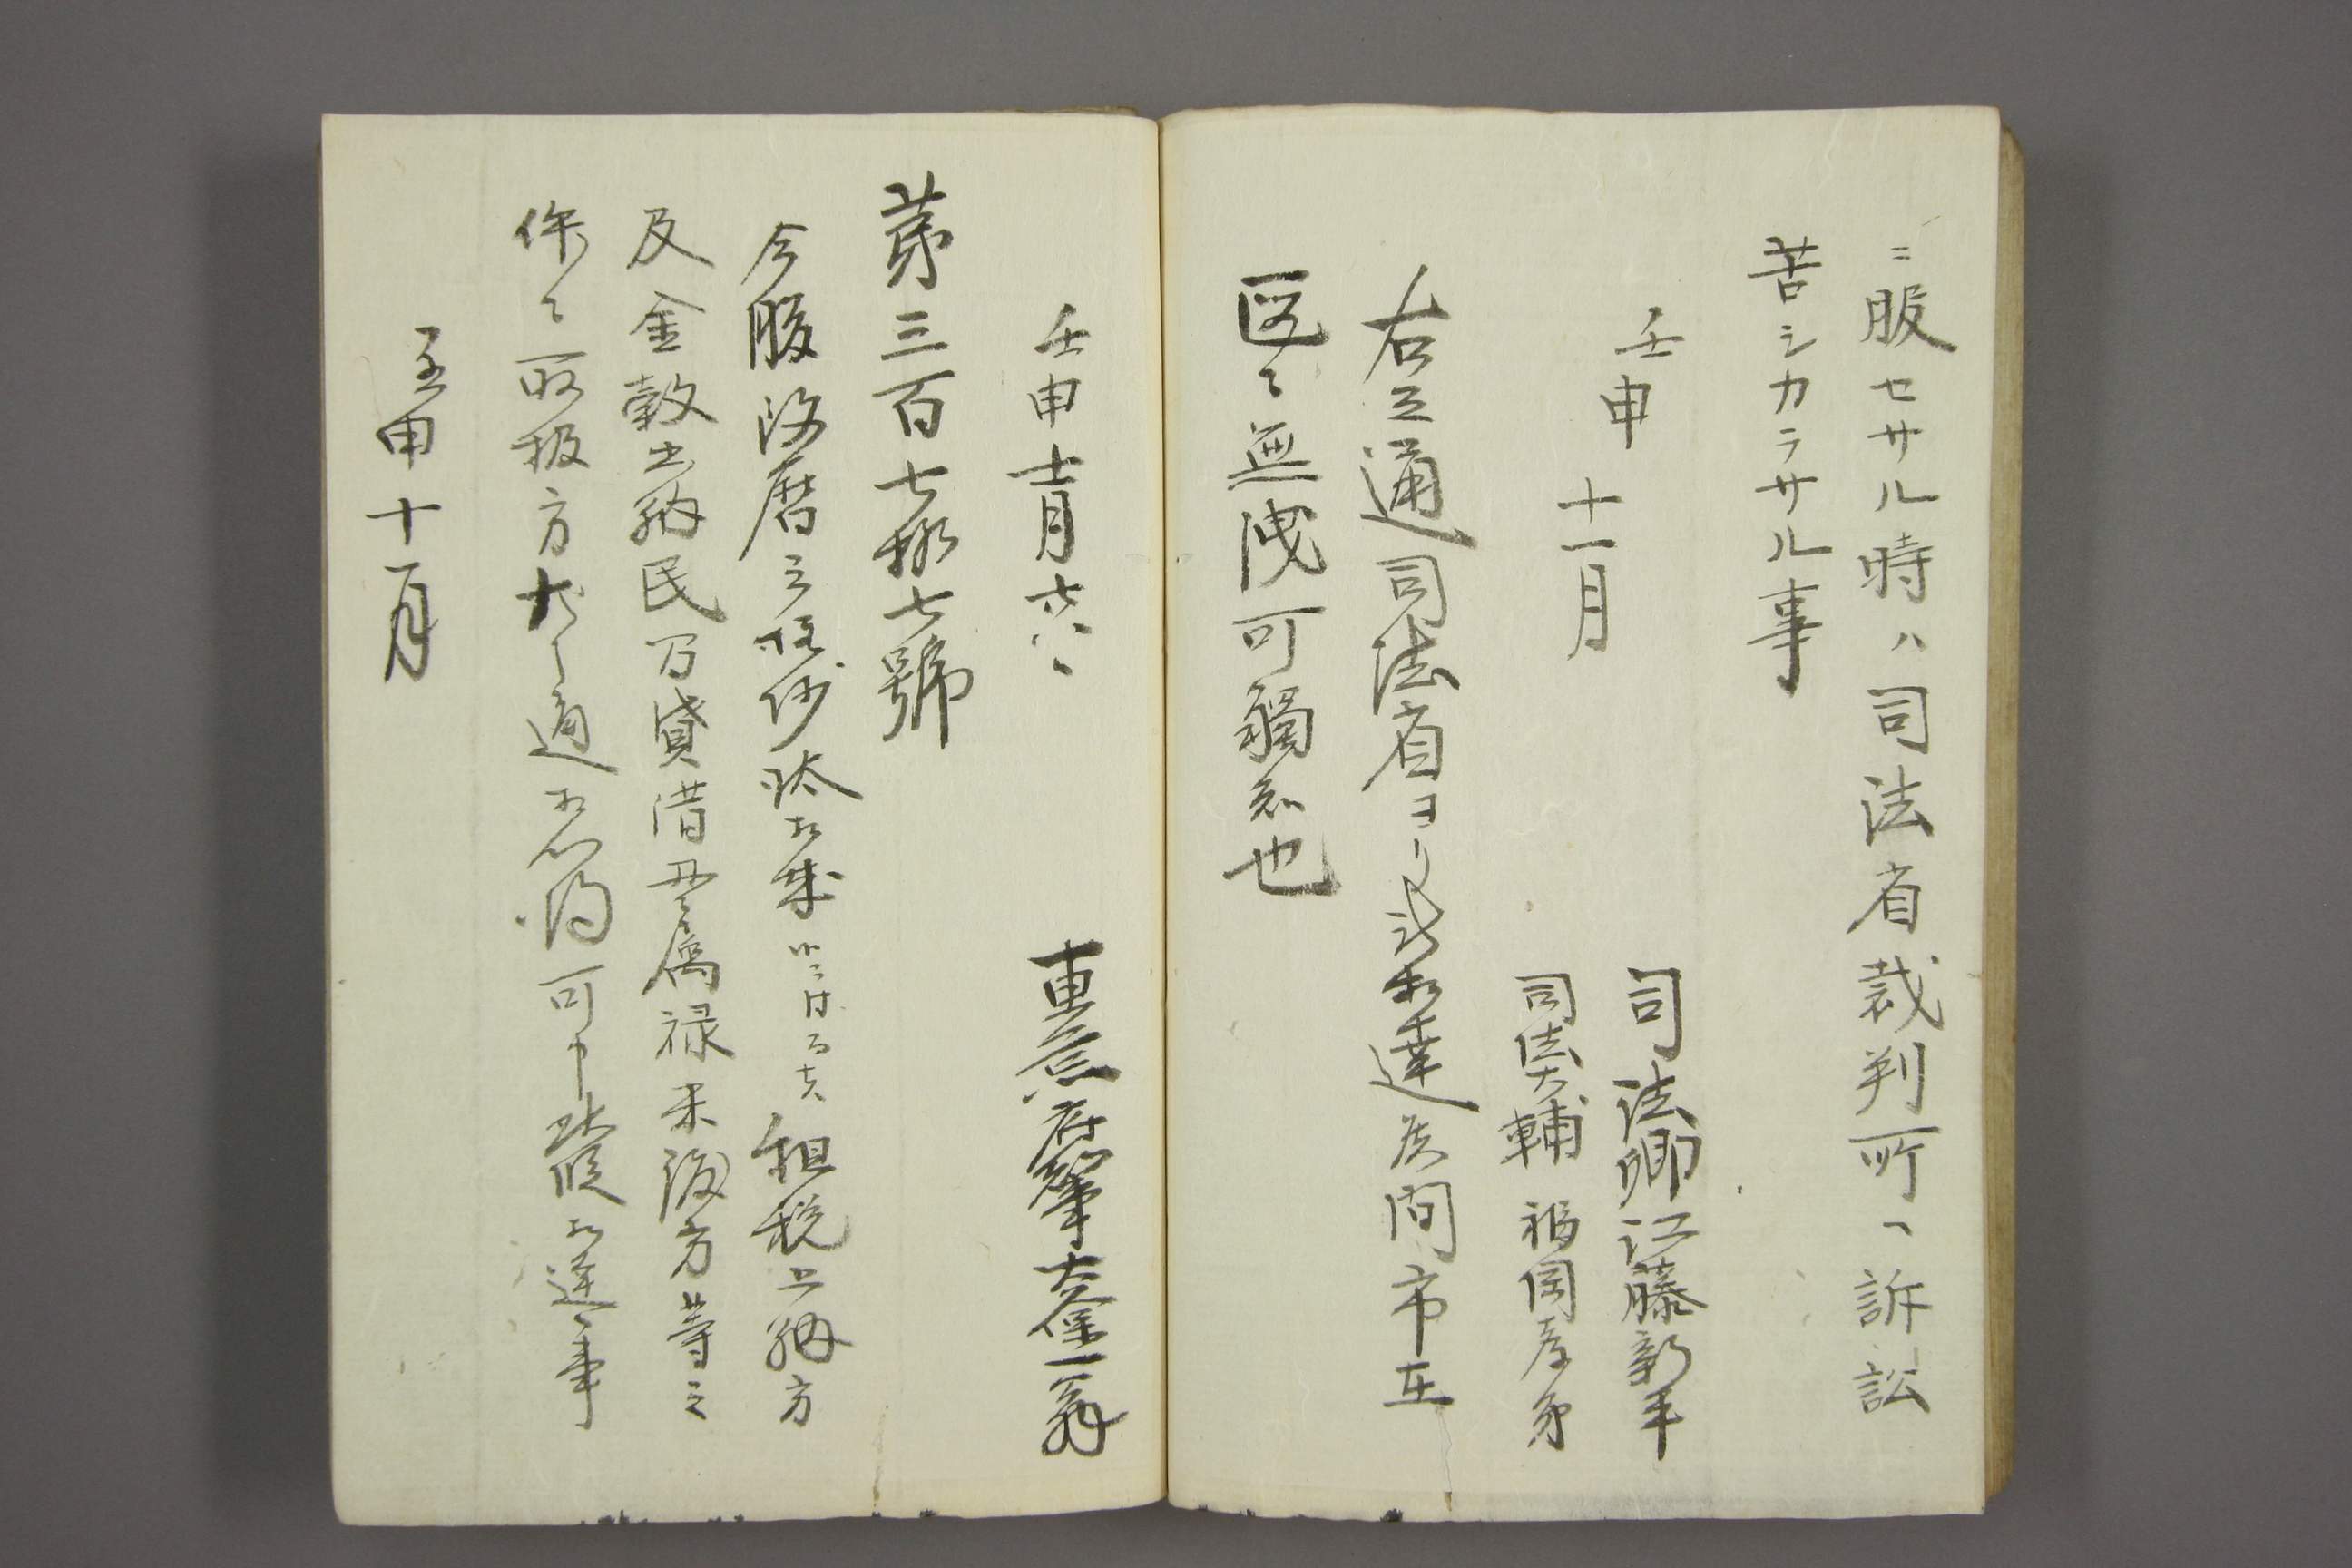 ニ服セサル時ハ司法省裁判所ヘ訴訟
苦シカラサル事
壬申
十一月
司法卿江藤新平
司法大輔福岡孝弟
右之通司法省ヨリ被相達候間市在
区々無洩可觸知也
壬申十一月廿八日
東京府知事大久保一翁
第三百七拾七號
今般改暦之儀被仰出候ニ付而者租税上納方
及金穀出納民間貸借并家禄米渡方等之
件々取扱方左之通相心得可申此段相達候事
壬申十一月